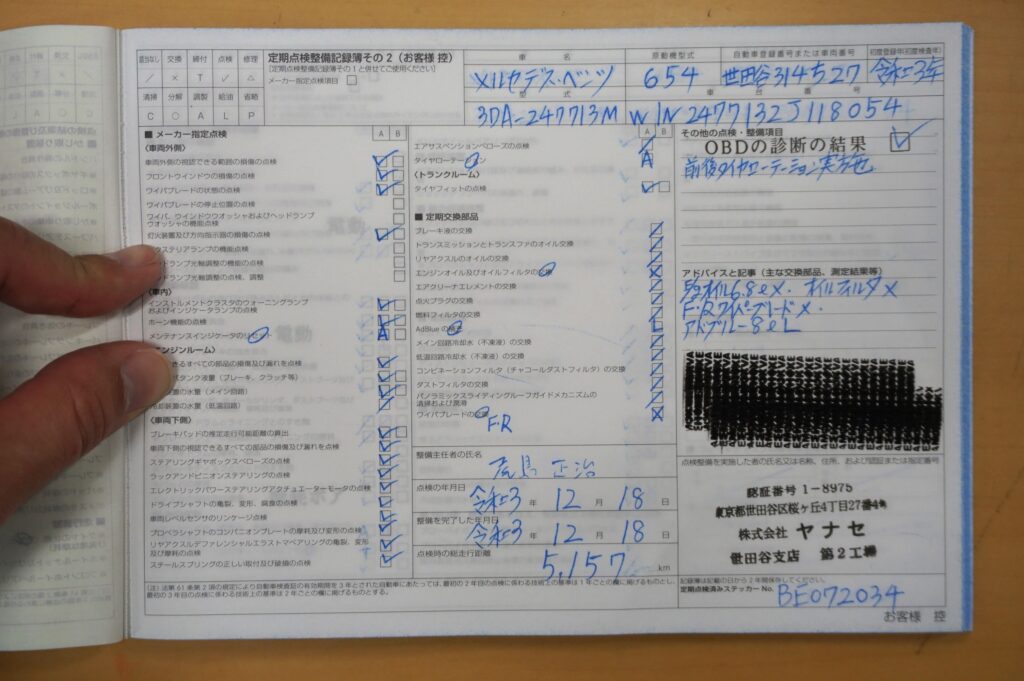 該当なし 交換 締付 点検 修理
/ × T ✓ △
清掃 分解 調整 給油 省略
C ○ A L P
定期点検整備記録簿その2(お客様 控)
[定期点検整備記録簿その1と併せてご使用ください]
メーカー指定点検項目 □
車 名
メルセデス・ベンツ
原動機型式
654
自動車登録番号または車両番号
世田谷314ち27
初度登録年(初度検査年)
令和3年
型 式
3DA-247713M
車 台 番 号
W1N2477132J118054
■ メーカー指定点検 A B
〈車両外側〉
車両外側の視認できる範囲の損傷の点検
フロントウインドウの損傷の点検
ワイパブレードの状態の点検
ワイパブレードの停止位置の点検
ワイパ、ウインドウウオッシャおよびヘッドランプ
ウオッシャの機能点検
灯火装置及び方向指示器の損傷の点検
クステリアランプの機能点検
ドランプ光軸調整の機能の点検
ドランプ光軸の点検、調整
〈車内〉
インストルメントクラスタのウォーニングランプ
およびインジケータランプの点検
ホーン機能の点検
メンテナンスインジケータの
ンジンルーム〉
きるすべての部品の損傷及び漏れを点検
タンク液量(ブレーキ、クラッチ等)
装置の水量(メイン回路)
冷却装置の水量(低温回路)
〈車両下側〉
ブレーキパッドの推定走行可能距離の算出
車両下側の視認できるすべての部品の損傷及び漏れを点検
ステアリングギヤボックスベローズの点検
ラックアンドピニオンステアリングの点検
エレクトリックパワーステアリングアクチュエーターモータの点検
ドライブシャフトの亀裂、変形、腐食の点検
車両レベルセンサのリンケージ点検
プロペラシャフトのコンパニオンプレートの摩耗及び変形の点検
リヤアクスルデファレンシャルエラストマベアリングの亀裂、変形
及び摩耗の点検
スチールスプリングの正しい取付及び破損の点検
A B
エアサスペンションベローズの点検
タイヤローテーション A
〈トランクルーム〉
タイヤフィットの点検
■ 定期交換部品
ブレーキ液の交換
トランスミッションとトランスファのオイル交換
リヤアクスルのオイルの交換
エンジンオイル及びオイルフィルタの交換
エアクリーナエレメントの交換
点火プラグの交換
燃料フィルタの交換
AdBlueの補充 L
メイン回路冷却水(不凍液)の交換
低温回路冷却水(不凍液)の交換
コンビネーションフィルタ(チャコールダストフィルタ)の交換
ダストフィルタの交換
パノラミックスライディングルーフガイドメカニズムの
清掃および潤滑
ワイパブレードの交換
F・R
整備主任者の氏名
正治
点検の年月日
令和3 年 12 月 18 日
整備を完了した年月日
令和3 年 12 月 18 日
点検時の総走行距離
5,157 km
その他の点検・整備項目
OBDの診断の結果
前後タイヤローテーション実施
アドバイスと記事(主な交換部品、測定結果等)
オイル6.8ℓ×. オイルフィルタ×
F・Rワイパーブレード×.
アドブルー8ℓL
点検整備を実施した者の氏名又は名称、住所、および認証または指定番号
認証番号 1-8975
東京都世田谷区桜ヶ丘4丁目27番4号
株式会社 ヤナセ
世田谷支店 第2工場
(注)法第61条第2項の規定により自動車検査証の有効期間を3年とされた自動車にあたっては、最初の2年目の点検に係わる技術上の基準は1年ごとの欄に掲げるものとし、
最初の3年目の点検に係わる技術上の基準は2年ごとの欄に掲げるものとする。
記録簿は記載の日から2年間保存してください。
定期点検済みステッカー No. BE072034
お客様 控